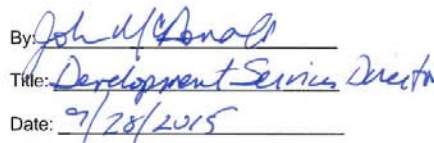 By: John McDonald
Title: Development Services Director
Date: 9/28/2015